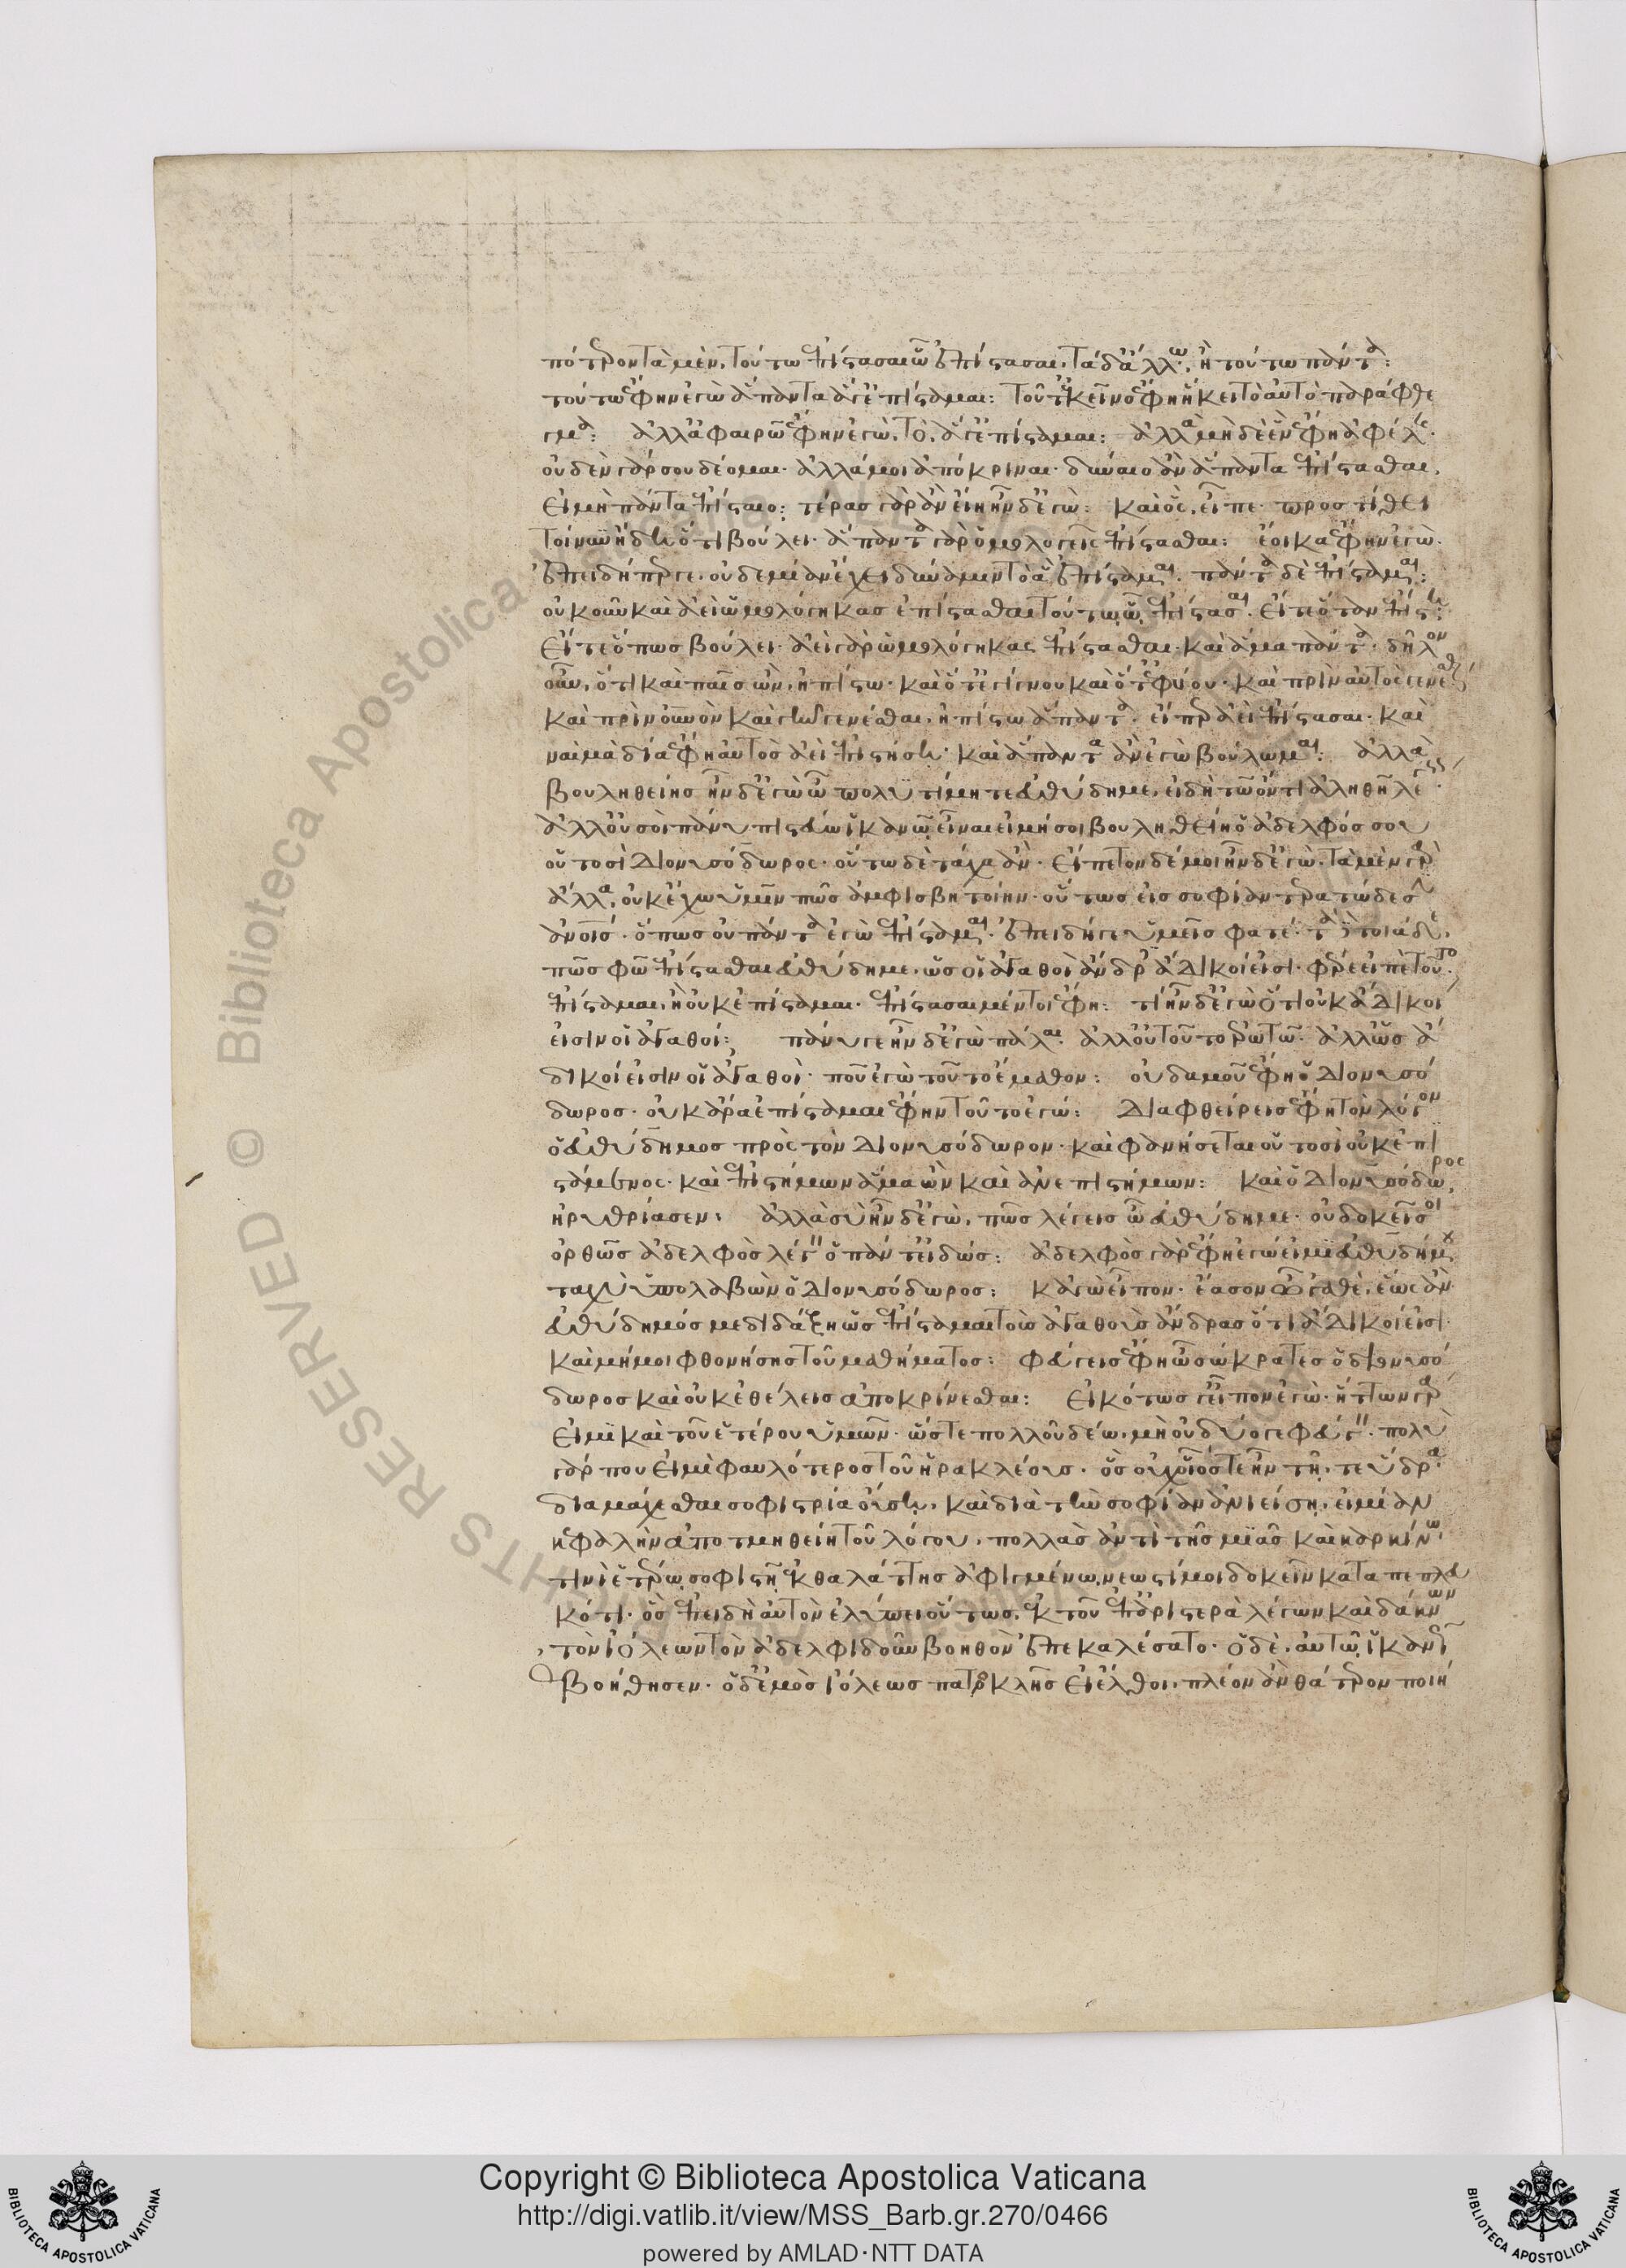 πότερον τὰ μὲν, τούτω ἐπίστασαι ὧ ἐπίστασαι, τὰ δ' ἄλλω, ἢ τούτω πάντα:
τούτω ἔφην ἐγὼ ἅπαντα ἅ γ' ἐπίσταμαι: τοῦτ' ἐκεῖνο ἔφη ἥκει τὸ αὐτὸ παράφθε
γμα: ἀλλ' ἀφαιρῶ ἔφην ἐγὼ, τὸ, ἅ γ' ἐπίσταμαι: ἀλλὰ μηδὲ ἓν ἔφη ἀφέλῃς·
οὐδὲν γάρ σου δέομαι· ἀλλά μοι ἀπόκριναι· δύναιο ἂν ἅπαντα ἐπίστασθαι,
εἰ μὴ πάντα ἐπίσταιο; τέρας γὰρ ἂν εἴη ἦν δ' ἐγὼ: καὶ ὃς, εἶπε· προστίθει
τοίνυν ἤδη ὅτι βούλει· ἅπαντα γὰρ ὁμολογεῖς ἐπίστασθαι: ἔοικα ἔφην ἐγὼ·
ἐπειδήπερ γε, οὐδεμίαν ἔχει δύναμιν τὸ ἃ ἐπίσταμαι· πάντα δὲ ἐπίσταμαι:
οὐκοῦν καὶ ἀεὶ ὡμολόγηκας ἐπίστασθαι τούτω ὧ ἐπίστασαι· εἴτε ὅταν ἐπίστῃ:
εἴτε ὅπως βούλει· ἀεὶ γὰρ ὡμολόγηκας ἐπίστασθαι· καὶ ἅμα πάντα· δῆλον
οὖν, ὅτι καὶ παῖς ὢν, ἠπίστω· καὶ ὅτ' ἐγίγνου καὶ ὅτ' ἐφύου· καὶ πρὶν αὐτὸς γενέσθαι
καὶ πρὶν οὐρανὸν καὶ γῆν γενέσθαι, ἠπίστω ἅπαντα· εἴπερ ἀεὶ ἐπίστασαι· καὶ
ναὶ μὰ δία ἔφη αὐτὸς ἀεὶ ἐπιστήσῃ· καὶ ἅπαντα ἂν ἐγὼ βούλωμαι: ἀλλὰ
βουληθείης ἦν δ' ἐγὼ ὦ πολυτίμητε εὐθύδημε, εἰ δὴ τῶ ὄντι ἀληθῆ λέγεις·
ἀλλ' οὔ σοι πάνυ πιστεύω ἱκανῶ εἶναι εἰ μή σοι βουληθείη ὁ ἀδελφός σου
οὑτοσὶ Διονυσόδωρος· οὕτω δὲ τάχα ἄν· εἴπετον δέ μοι ἦν δ' ἐγὼ, τὰ μὲν γὰρ
ἄλλα, οὐκ ἔχω ὑμῖν πῶς ἀμφισβητοίην· οὕτως εἰς σοφίαν τερατώδεσιν
ἀνοις· ὅπως οὐ πάντα ἐγὼ ἐπίσταμαι· ἐπειδή γε ὑμεῖς φατέ· τὰ δὲ τοιάδε,
πῶς φῶ ἐπίστασθαι εὐθύδημε, ὡς οἱ ἀγαθοὶ ἄνδρες ἄδικοί εἰσι· φέρε εἰπὲ τοῦτο·
ἐπίσταμαι, ἢ οὐκ ἐπίσταμαι· ἐπίστασαι μέντοι ἔφη: τί ἦν δ' ἐγὼ ὅτι οὐκ ἄδικοι
εἰσιν οἱ ἀγαθοί: πάνυ γε ἦν δ' ἐγὼ πάλαι· ἀλλ' οὐ τοῦτο ἐρωτῶ· ἀλλ' ὡς ἄ
δικοί εἰσιν οἱ ἀγαθοὶ· ποῦ ἐγὼ τοῦτο ἔμαθον: οὐδαμοῦ ἔφη ὁ Διονυσό
δωρος· οὐκ ἄρα ἐπίσταμαι ἔφην τοῦτο ἐγώ: Διαφθείρεις ἔφη τὸν λόγον
ὁ εὐθύδημος πρὸς τὸν Διονυσόδωρον· καὶ φανήσεται οὑτοσὶ οὐκ ἐπι
στάμενος· καὶ ἐπιστήμων ἅμα ὢν καὶ ἀνεπιστήμων: καὶ ὁ Διονυσόδωρος
ἠρυθρίασεν: ἀλλὰ σὺ ἦν δ' ἐγὼ, πῶς λέγεις ὦ εὐθύδημε· οὐ δοκεῖ σοι
ὀρθῶς ἀδελφὸς λέγειν ὁ πάντ' εἰδώς: ἀδελφὸς γὰρ ἔφη ἐγώ εἰμι εὐθυδήμου
ταχὺ ὑπολαβὼν ὁ Διονυσόδωρος: κἀγὼ εἶπον· ἔασον ὦ 'γαθὲ, ἕως ἂν
εὐθύδημός με διδάξη ὡς ἐπίσταμαι τοὺς ἀγαθοὺς ἄνδρας ὅτι ἄδικοί εἰσι·
καὶ μή μοι φθονήσης τοῦ μαθήματος: φεύγεις ἔφη ὦ σώκρατες ὁ διονυσό
δωρος καὶ οὐκ ἐθέλεις ἀποκρίνεσθαι: εἰκότως γ' εἶπον ἐγὼ· ἥττων γάρ
εἰμι καὶ τοῦ ἑτέρου ὑμῶν· ὥστε πολλοῦ δέω, μὴ οὐ δύο γε φεύγειν· πολὺ
γάρ που εἰμὶ φαυλότερος τοῦ ἡρακλέους· ὃς οὐχ οἷός τε ἦν τῆ, τε ὕδρα
διαμάχεσθαι σοφιστρία οὔσῃ, καὶ διὰ τὴν σοφίαν ἀνιείση, εἰ μίαν
κεφαλὴν ἀποτμηθείη τοῦ λόγου, πολλὰς ἀντὶ τῆς μιᾶς καὶ καρκίνω
τινὶ ἑτέρω σοφιστῆ ἐκ θαλάττης ἀφιγμένω, νεωστί μοι δοκεῖν καταπεπλευ
κότι· ὃς ἐπειδὴ αὐτὸν ἐλύπει οὕτως, ἐκ τοῦ ἐπ' ἀριστερὰ λέγων καὶ δάκνων
τὸν ἰόλεων τὸν ἀδελφιδοῦν βοηθὸν ἐπεκαλέσατο· ὁ δὲ, αὐτῶ ἱκανῶς
ἐβοήθησεν· ὁ δ' ἐμὸς ἰόλεως πατροκλῆς εἰ ἔλθοι, πλέον ἂν θάτερον ποιή
Copyright © Biblioteca Apostolica Vaticana
http://digi.vatlib.it/view/MSS_Barb.gr.270/0466
powered by AMLAD·NTT DATA
BIBLIOTECA APOSTOLICA VATICANA
BIBLIOTECA APOSTOLICA VATICANA
© Biblioteca Apostolica Vaticana ALL RIGHTS RESERVED